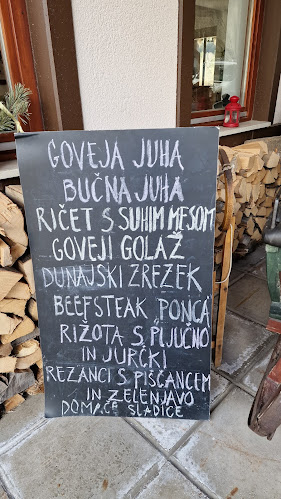 GOVEJA JUHA
BUČNA JUHA
RIČET S SUHIM MESOM
GOVEJI GOLAŽ
DUNAJSKI ZREZEK
BEEFSTEAK PONCA
RIŽOTA S PLJUČNO
IN JURČKI
REZANCI S PIŠČANCEM
IN ZELENJAVO
DOMAČE SLADICE